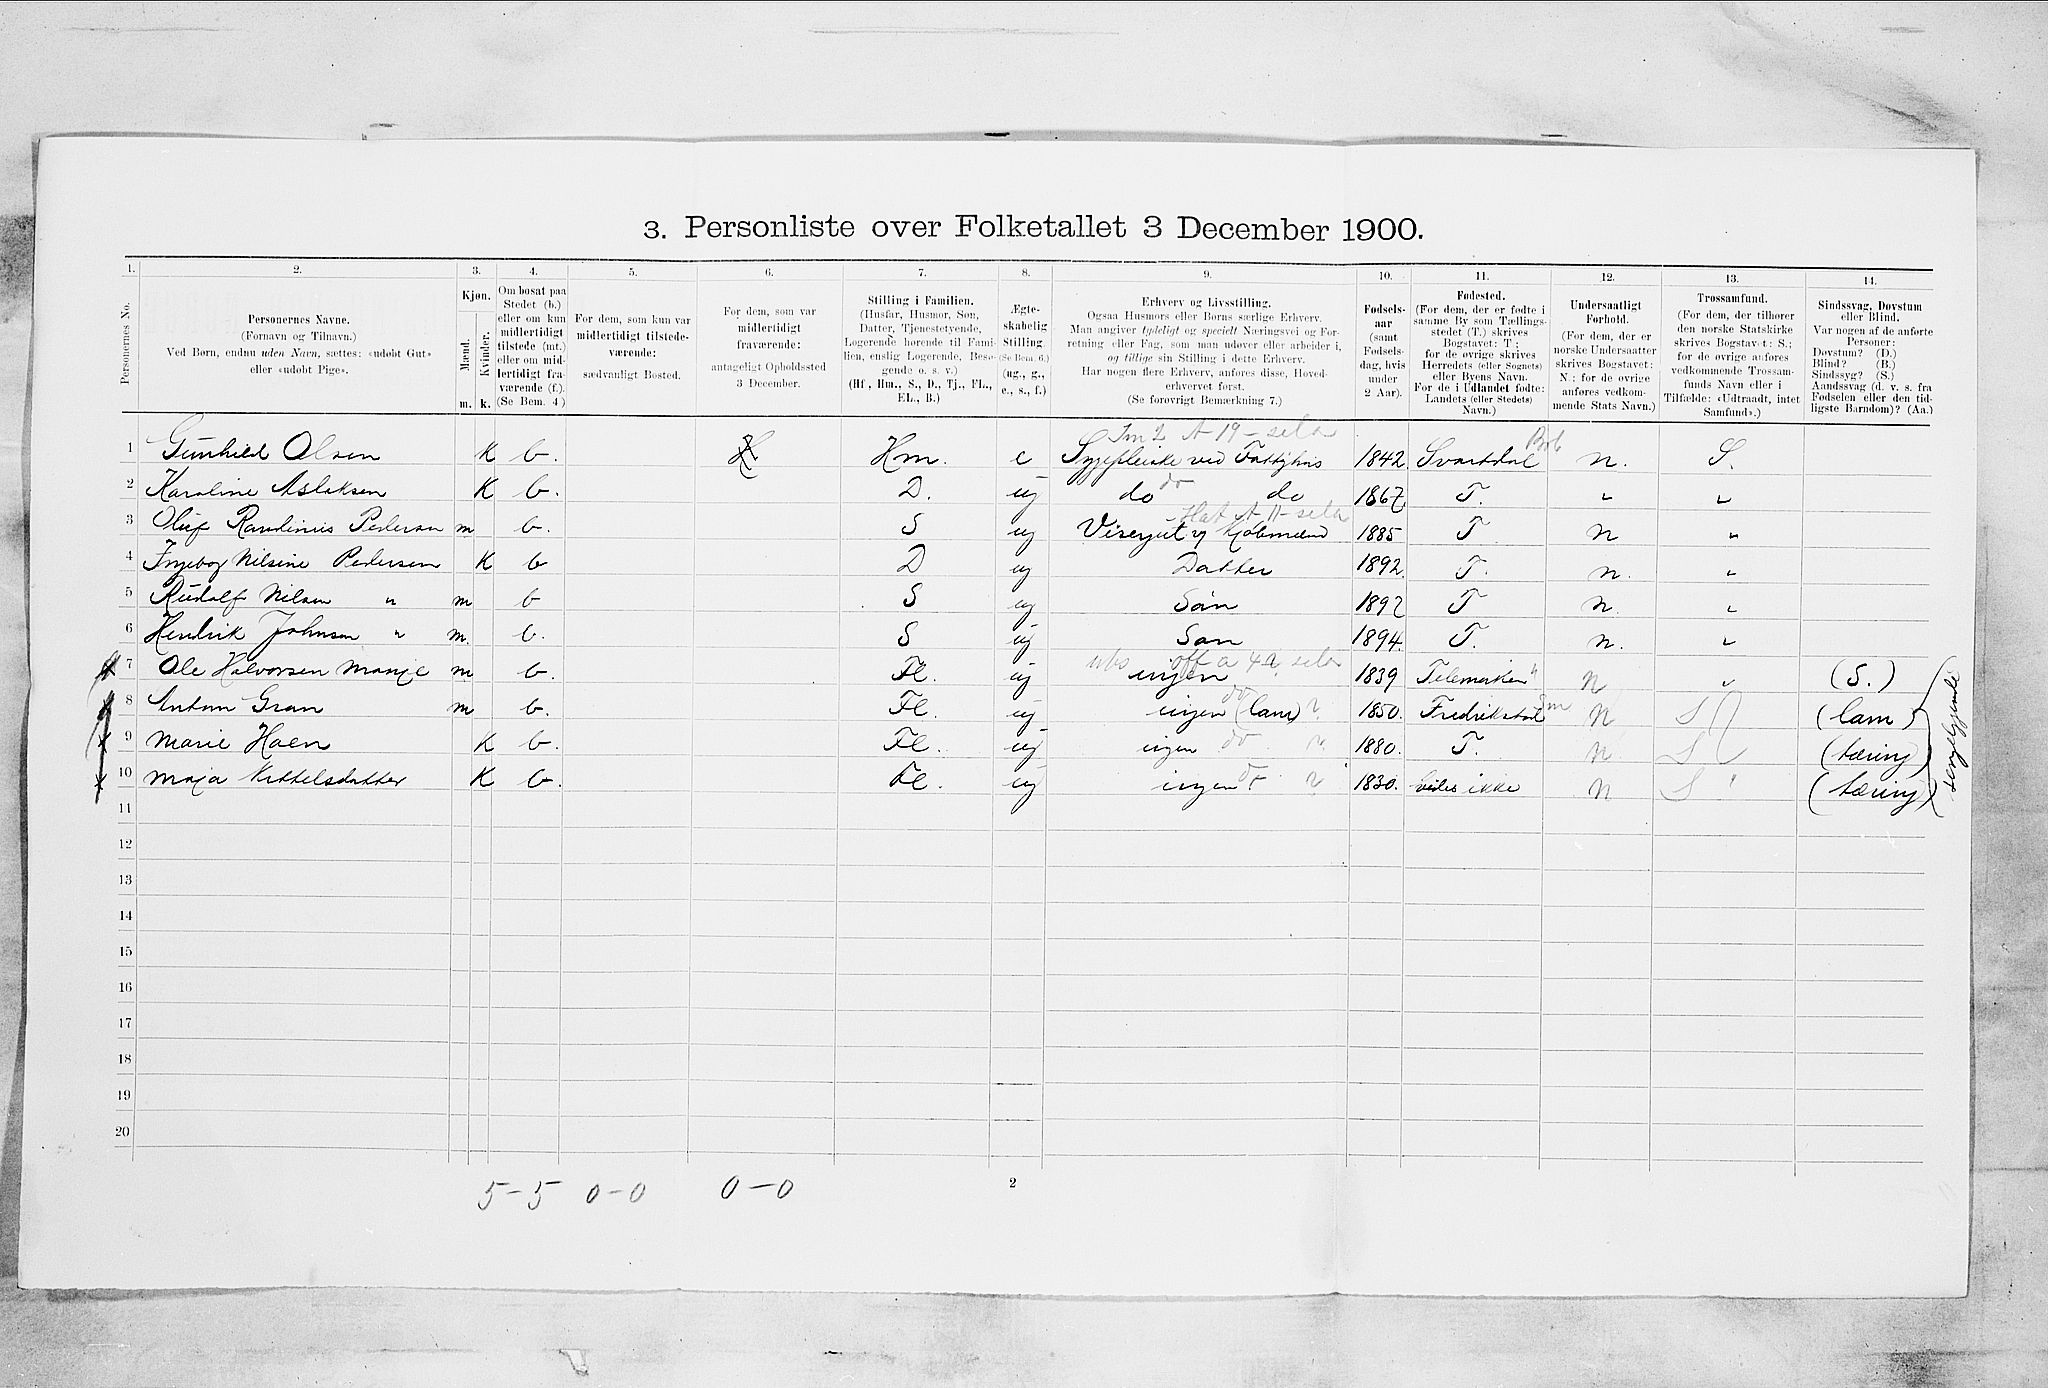 3. Personliste over Folketallet 3 December 1900.
1. 2. 3. 4. 5. 6. 7. 8. 9. 10. 11. 12. 13. 14.
Personernes No.
Personernes Navne.
(Fornavn og Tilnavn.)
Ved Børn, endnu uden Navn, sættes: «udobt Gut»
eller «udobt Pige».
Kjøn.
Mænd.
Kvinder.
m. k.
Om bosat paa
Stedet (b.)
eller om kun
midlertidigt
tilstede (mt.)
eller om mid-
lertidigt fra-
værende (f.).
(Se Bem. 4.)
For dem, som kun var
midlertidigt tilstede-
værende:
sædvanligt Bosted.
For dem, som var
midlertidigt
fraværende:
antageligt Opholdssted
3 December.
Stilling i Familien.
(Husfar, Husmor, Søn,
Datter, Tjenestetyende,
Logerende hørende til Fami-
lien, enslig Logerende, Besø-
gende o. s. v.)
(Hf., Hm., S., D., Tj., FL.,
EL., B.)
Ægte-
skabelig
Stilling.
(Se Bem. 6.)
(ug., g.,
e., s., f.)
Erhverv og Livsstilling.
Ogsaa Husmors eller Børns særlige Erhverv.
Man angiver tydeligt og specielt Næringsvei og For-
retning eller Fag, som man udøver eller arbeider i,
og tillige sin Stilling i dette Erhverv.
Har nogen flere Erhverv, anføres disse, Hoved-
erhvervet først.
(Se forøvrigt Bemærkning 7.)
Fødsels-
aar
(samt
Fødsels-
dag, hvis
under
2 Aar).
Fødested.
(For dem, der er fødte i
samme By som Tællings-
stedet (T.) skrives
Bogstavet: T.;
for de øvrige skrives
Herredets (eller Sognets)
eller Byens Navn.
For de i Udlandet fødte:
Landets (eller Stedets)
Navn.)
Undersaatligt
Forhold.
(For dem, der er
norske Undersaatter
skrives Bogstavet:
N.; for de øvrige
anføres vedkom-
mende Stats Navn.)
Trossamfund.
(For dem, der tilhører
den norske Statskirke
skrives Bogstavet: S.;
for de øvrige anføres
vedkommende Trossam-
funds Navn eller i
Tilfælde: «Udtraadt, intet
Samfund».)
Sindssvag, Døvstum
eller Blind.
Var nogen af de anførte
Personer:
Døvstum? (D.)
Blind? (B.)
Sindssyg? (S.)
Aandssvag (d. v. s. fra
Fødselen eller den tid-
ligste Barndom)? (Aa.)
1 Gunhild Olsen K b. Hm. e Sygepleiske ved Fattighus 1842 Svartdal n. S.
2 Karoline Aslaksen K b. D. ug do do do 1867 T. " "
3 Oluf Randinius Pedersen m b. S ug Visergut v Kjøbmand 1885 T n "
4 Ingeborg Nilsine Pedersen K b D ug Datter 1892. T. n. "
5 Rudolf Nilsen " m b S ug Søn 1892 T n. "
6 Hendrik Johnsen " m. b. S ug Søn 1894. T. n. "
7 Ole Halvorsen m b. FL. ug ingen 1839 Telemarken n " (S.)
8 Anton Gran m b. FL. ug ingen (lam) 1850. Fredrikstad n S (lam)
9 Marie Hoen K b. FL. ug ingen do 1880. T. n S (tæring)
10 Maja Kittelsdatter K b. FL. ug ingen 1830. vides ikke n S " (tæring)
sengeliggende
11
12
13
14
15
16
17
18
19
20
5-5 0-0 0-0 2